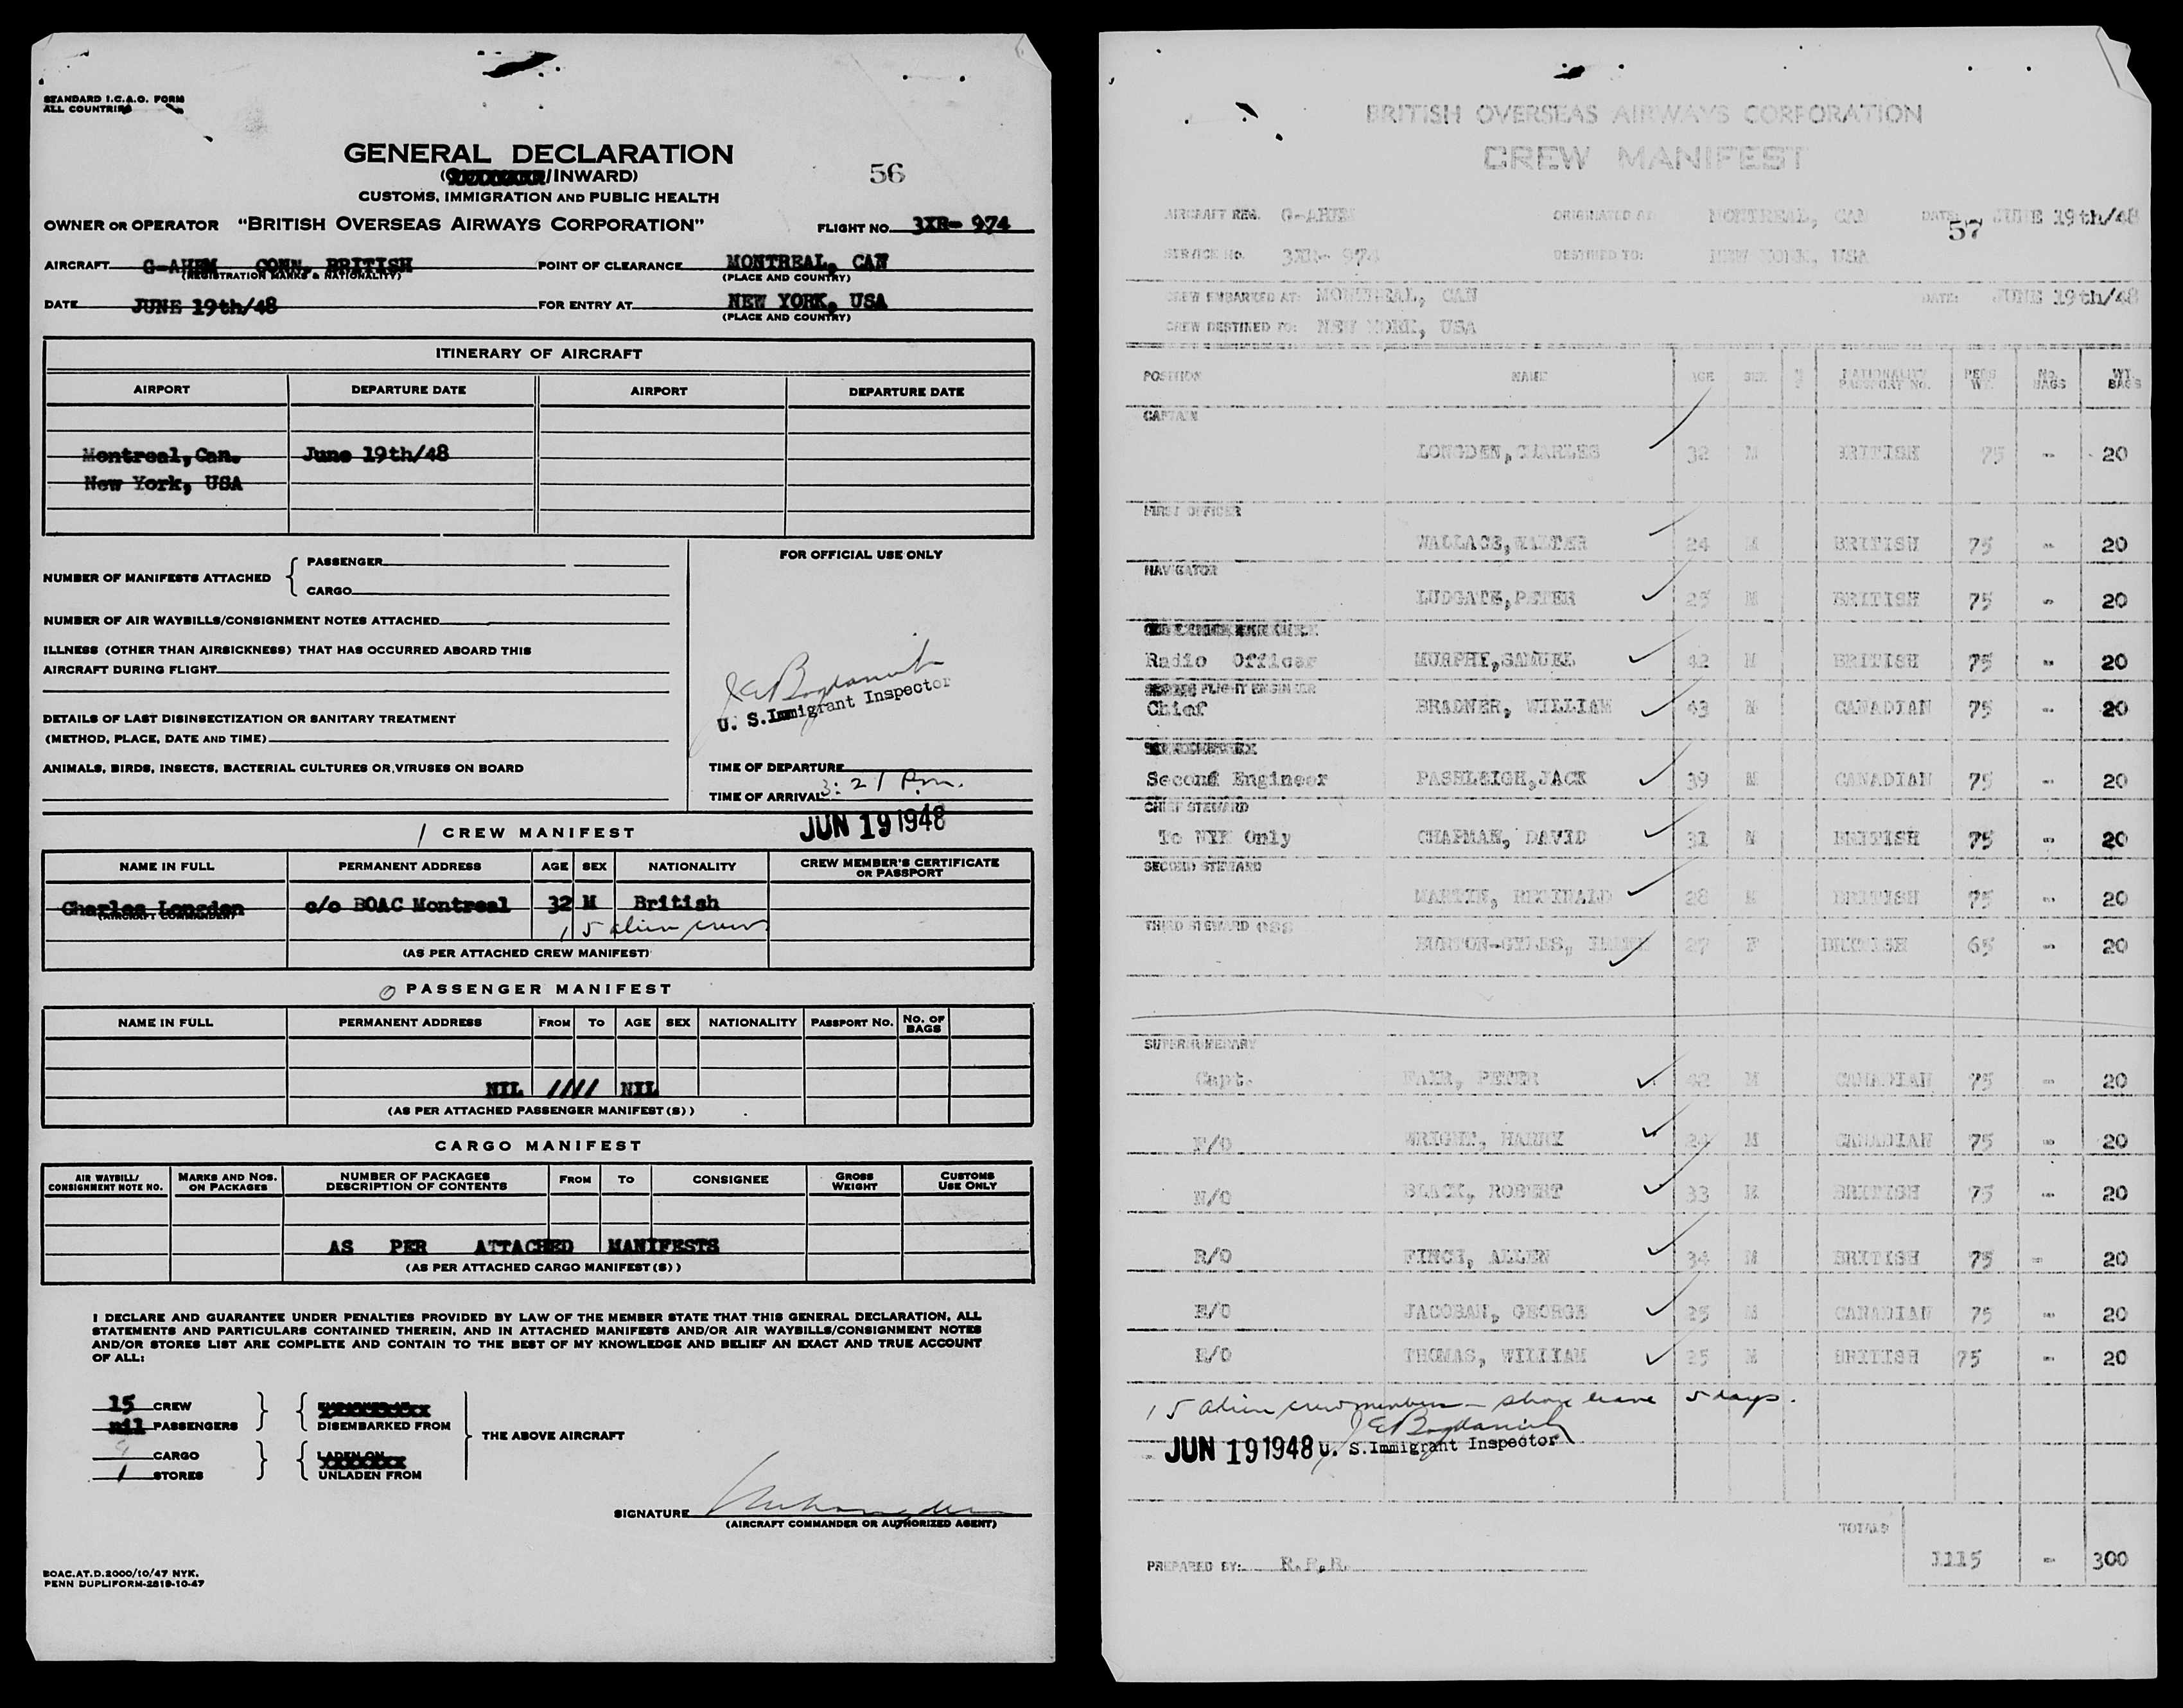 STANDARD I.C.A.O. FORM
ALL COUNTRIES
GENERAL DECLARATION
/INWARD)
56
CUSTOMS, IMMIGRATION AND PUBLIC HEALTH
OWNER OR OPERATOR "BRITISH OVERSEAS AIRWAYS CORPORATION" FLIGHT NO. 3XR- 974
AIRCRAFT G-AHEM CONN, BRITISH POINT OF CLEARANCE MONTREAL, CAN
(REGISTRATION MARKS & NATIONALITY) (PLACE AND COUNTRY)
DATE JUNE 19th/48 FOR ENTRY AT NEW YORK, USA
(PLACE AND COUNTRY)
ITINERARY OF AIRCRAFT
AIRPORT DEPARTURE DATE AIRPORT DEPARTURE DATE
Montreal, Can. June 19th/48
New York, USA
FOR OFFICIAL USE ONLY
NUMBER OF MANIFESTS ATTACHED { PASSENGER
CARGO
NUMBER OF AIR WAYBILLS/CONSIGNMENT NOTES ATTACHED
ILLNESS (OTHER THAN AIRSICKNESS) THAT HAS OCCURRED ABOARD THIS
AIRCRAFT DURING FLIGHT
U. S. Immigrant Inspector
DETAILS OF LAST DISINSECTIZATION OR SANITARY TREATMENT
(METHOD, PLACE, DATE AND TIME)
ANIMALS, BIRDS, INSECTS, BACTERIAL CULTURES OR VIRUSES ON BOARD
TIME OF DEPARTURE
TIME OF ARRIVAL 3:21 P.m.
JUN 19 1948
/ CREW MANIFEST
NAME IN FULL PERMANENT ADDRESS AGE SEX NATIONALITY CREW MEMBER'S CERTIFICATE OR PASSPORT
Charles Longden c/o BOAC Montreal 32 M British
(AIRCRAFT COMMANDER)
15 alien crew
(AS PER ATTACHED CREW MANIFEST)
0 PASSENGER MANIFEST
NAME IN FULL PERMANENT ADDRESS FROM TO AGE SEX NATIONALITY PASSPORT NO. NO. OF BAGS
NIL //// NIL
(AS PER ATTACHED PASSENGER MANIFEST(S))
CARGO MANIFEST
AIR WAYBILL/ CONSIGNMENT NOTE NO. MARKS AND NOS. ON PACKAGES NUMBER OF PACKAGES DESCRIPTION OF CONTENTS FROM TO CONSIGNEE GROSS WEIGHT CUSTOMS USE ONLY
AS PER ATTACHED MANIFESTS
(AS PER ATTACHED CARGO MANIFEST(S))
I DECLARE AND GUARANTEE UNDER PENALTIES PROVIDED BY LAW OF THE MEMBER STATE THAT THIS GENERAL DECLARATION, ALL
STATEMENTS AND PARTICULARS CONTAINED THEREIN, AND IN ATTACHED MANIFESTS AND/OR AIR WAYBILLS/CONSIGNMENT NOTES
AND/OR STORES LIST ARE COMPLETE AND CONTAIN TO THE BEST OF MY KNOWLEDGE AND BELIEF AN EXACT AND TRUE ACCOUNT
OF ALL:
15 CREW
nil PASSENGERS DISEMBARKED FROM
THE ABOVE AIRCRAFT
CARGO LADEN ON
1 STORES UNLADEN FROM
SIGNATURE
(AIRCRAFT COMMANDER OR AUTHORIZED AGENT)
BOAC.AT.D.2000/10/47 NYK.
PENN DUPLIFORM-2819-10-47
BRITISH OVERSEAS AIRWAYS CORPORATION
CREW MANIFEST
AIRCRAFT REG. G-AHEM ORIGINATED AT MONTREAL, CAN DATE: JUNE 19th/48
57
SERVICE No. 3XR- 974 DESTINED TO: NEW YORK, USA
CREW EMBARKED AT: MONTREAL, CAN DATE: JUNE 19th/48
CREW DESTINED TO: NEW YORK, USA
POSITION NAME AGE SEX NATIONALITY PASSPORT NO. PERS WT. No. BAGS WT. BAGS
CAPTAIN
LONGDEN, CHARLES 32 M BRITISH 75 - 20
FIRST OFFICER
WALLACE, WALTER 24 M BRITISH 75 - 20
NAVIGATOR
LUDGATE, PETER 25 M BRITISH 75 - 20
Radio Officer MURPHY, SAMUEL 42 M BRITISH 75 - 20
FLIGHT ENGINEER
Chief BRADNER, WILLIAM 43 M CANADIAN 75 - 20
Second Engineer PASHLEIGH, JACK 39 M CANADIAN 75 - 20
CHIEF STEWARD
To NYK Only CHAPMAN, DAVID 31 M BRITISH 75 - 20
SECOND STEWARD
MARTIN, REGINALD 28 M BRITISH 75 - 20
THIRD STEWARD ess
BURTON-GYLES, 27 F BRITISH 65 - 20
SUPERNUMERARY
Capt. PETER 42 M CANADIAN 75 - 20
F/O WRIGHT, HARRY M CANADIAN 75 - 20
N/O BLACK, ROBERT 33 M BRITISH 75 - 20
R/O FINCH, ALLEN 34 M BRITISH 75 - 20
E/O JACOBAN, GEORGE 25 M CANADIAN 75 - 20
E/O THOMAS, WILLIAM 25 M BRITISH 75 - 20
15 alien crewmembers - shore leave 5 days.
JUN 19 1948 U. S. Immigrant Inspector
TOTALS
PREPARED BY: R.P.R. 1115 - 300